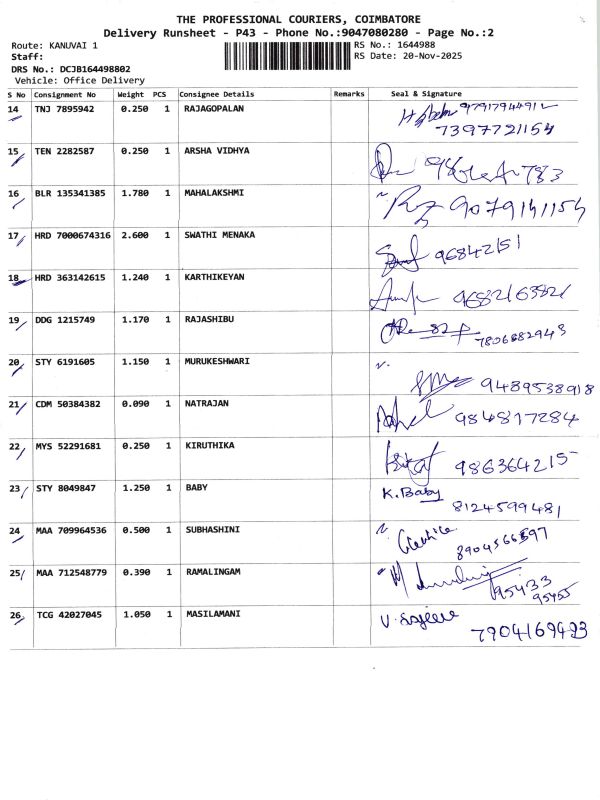 THE PROFESSIONAL COURIERS, COIMBATORE
Delivery Runsheet - P43 - Phone No.:9047080280 - Page No.:2
Route: KANUVAI 1
RS No.: 1644988
Staff:
RS Date: 20-Nov-2025
DRS No.: DCJB164498802
Vehicle: Office Delivery
S No Consignment No Weight PCS Consignee Details Remarks Seal & Signature
14 TNJ 7895942 0.250 1 RAJAGOPALAN
7397721154
15 TEN 2282587 0.250 1 ARSHA VIDHYA
16 BLR 135341385 1.780 1 MAHALAKSHMI 9079141154
17 HRD 7000674316 2.600 1 SWATHI MENAKA 96842151
18 HRD 363142615 1.240 1 KARTHIKEYAN
19 DDG 1215749 1.170 1 RAJASHIBU
7806882943
20 STY 6191605 1.150 1 MURUKESHWARI
9489538918
21 CDM 50384382 0.090 1 NATRAJAN 984817284
22 MYS 52291681 0.250 1 KIRUTHIKA 986364215
23 STY 8049847 1.250 1 BABY K.Baby
8124599481
24 MAA 709964536 0.500 1 SUBHASHINI
25 MAA 712548779 0.390 1 RAMALINGAM
95433
95455
26 TCG 42027045 1.050 1 MASILAMANI
7904169493